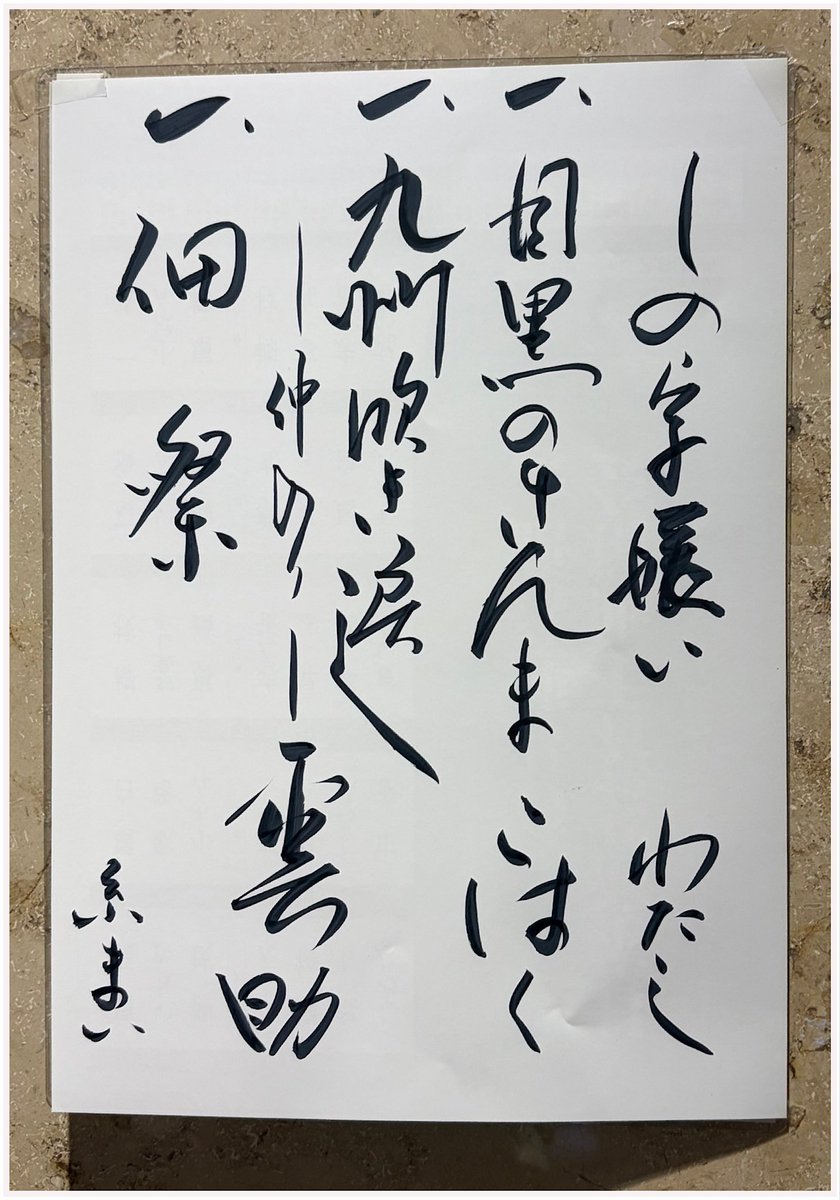 しの字嫌い わたし
一、目黒のさんま こはく
一、九州吹き戻し
―仲入り― 雲助
一、佃祭